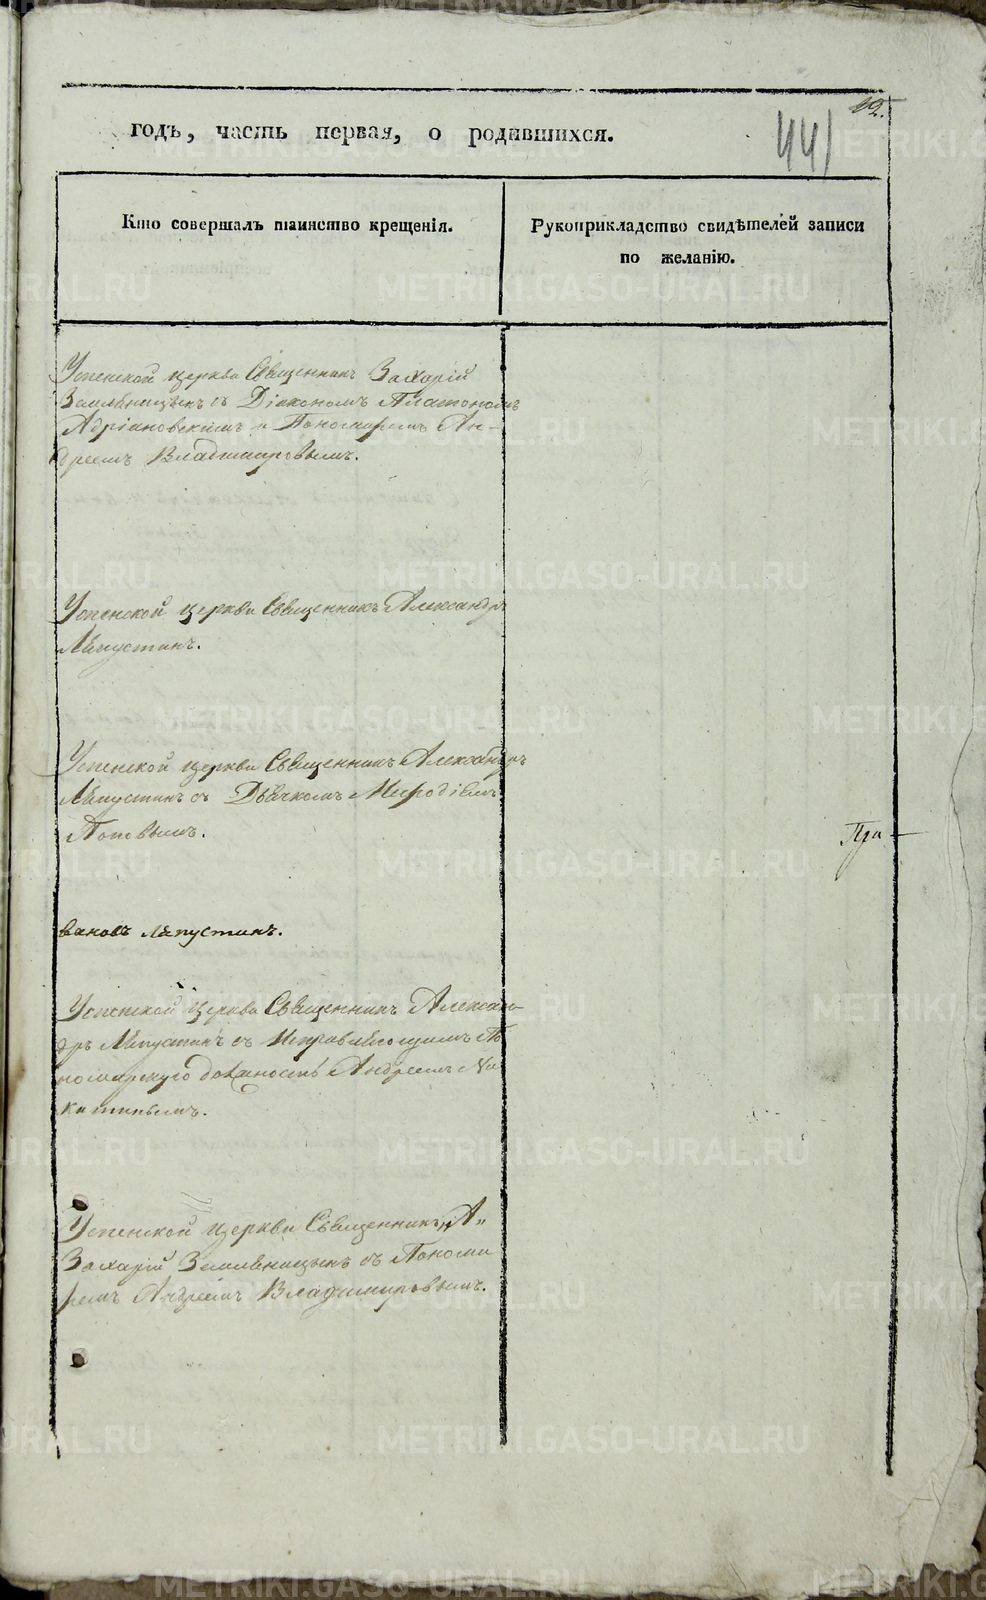 19.
441
годъ, часть первая, о родившихся.
Кто совершалъ таинство крещенія.
Рукоприкладство свидѣтелей записи
по желанію.
Успенской церкви Священникъ Захарій
Земляницынъ съ Діакономъ Платономъ
Адріановскимъ и Пономаремъ Ан-
дреемъ Владимировымъ.
Успенской церкви Священникъ Александръ
Ляпустинъ.
Успенской церкви Священникъ Александръ
Ляпустинъ съ Дьячкомъ Меѳодіемъ
Поповымъ.
Пра-
вановъ Ляпустинъ.
Успенской церкви Священникъ Алексан-
дръ Ляпустинъ съ Исправляющимъ По
номарскую должность Андреемъ Ни
китинымъ.
Успенской церкви Священникъ
Захарій Земляницынъ съ Понома
ремъ Андреемъ Владимировымъ.
METRIKI.GASO-URAL.RU